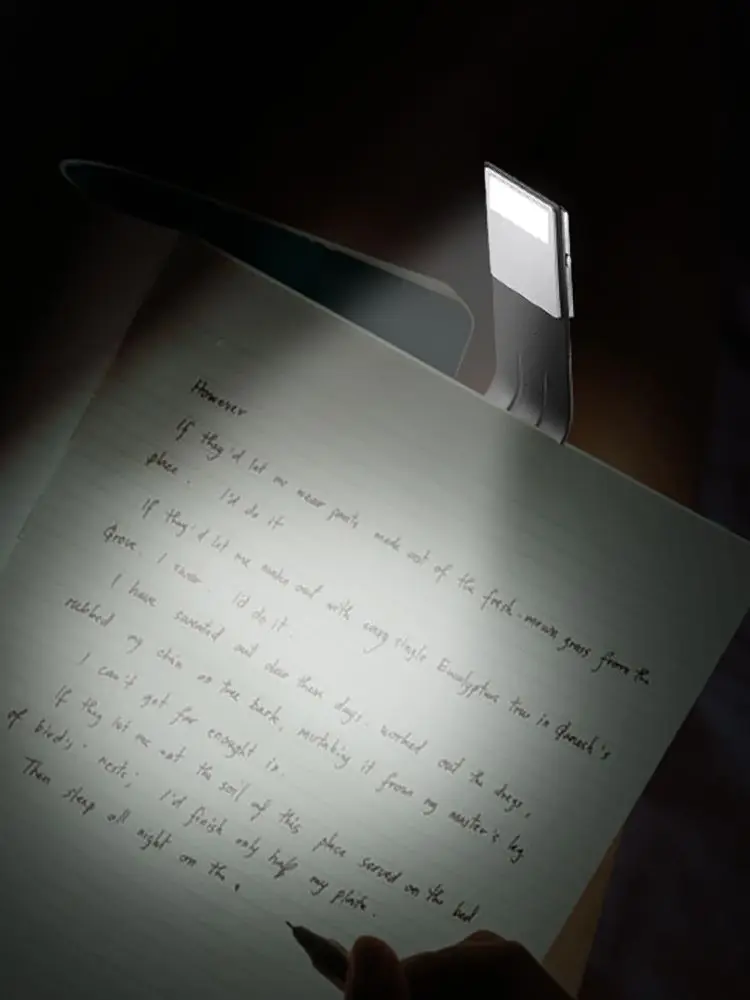 However
If they'd let me wear pants made out of the fresh-mown grass from the
place. I'd do it
If they'd let me make out with every single Eucalyptus tree in Quench's
Grove. I swear. I'd do it.
I have sweated out clear these days. worked out the dregs,
rubbed my chin on tree bark, mistaking it from my master's leg
I can't get far enought in.
If they let me eat the soil of this place served on the bed
of bird's - nests; I'd finish only half my plate.
Then sleep all night on the.